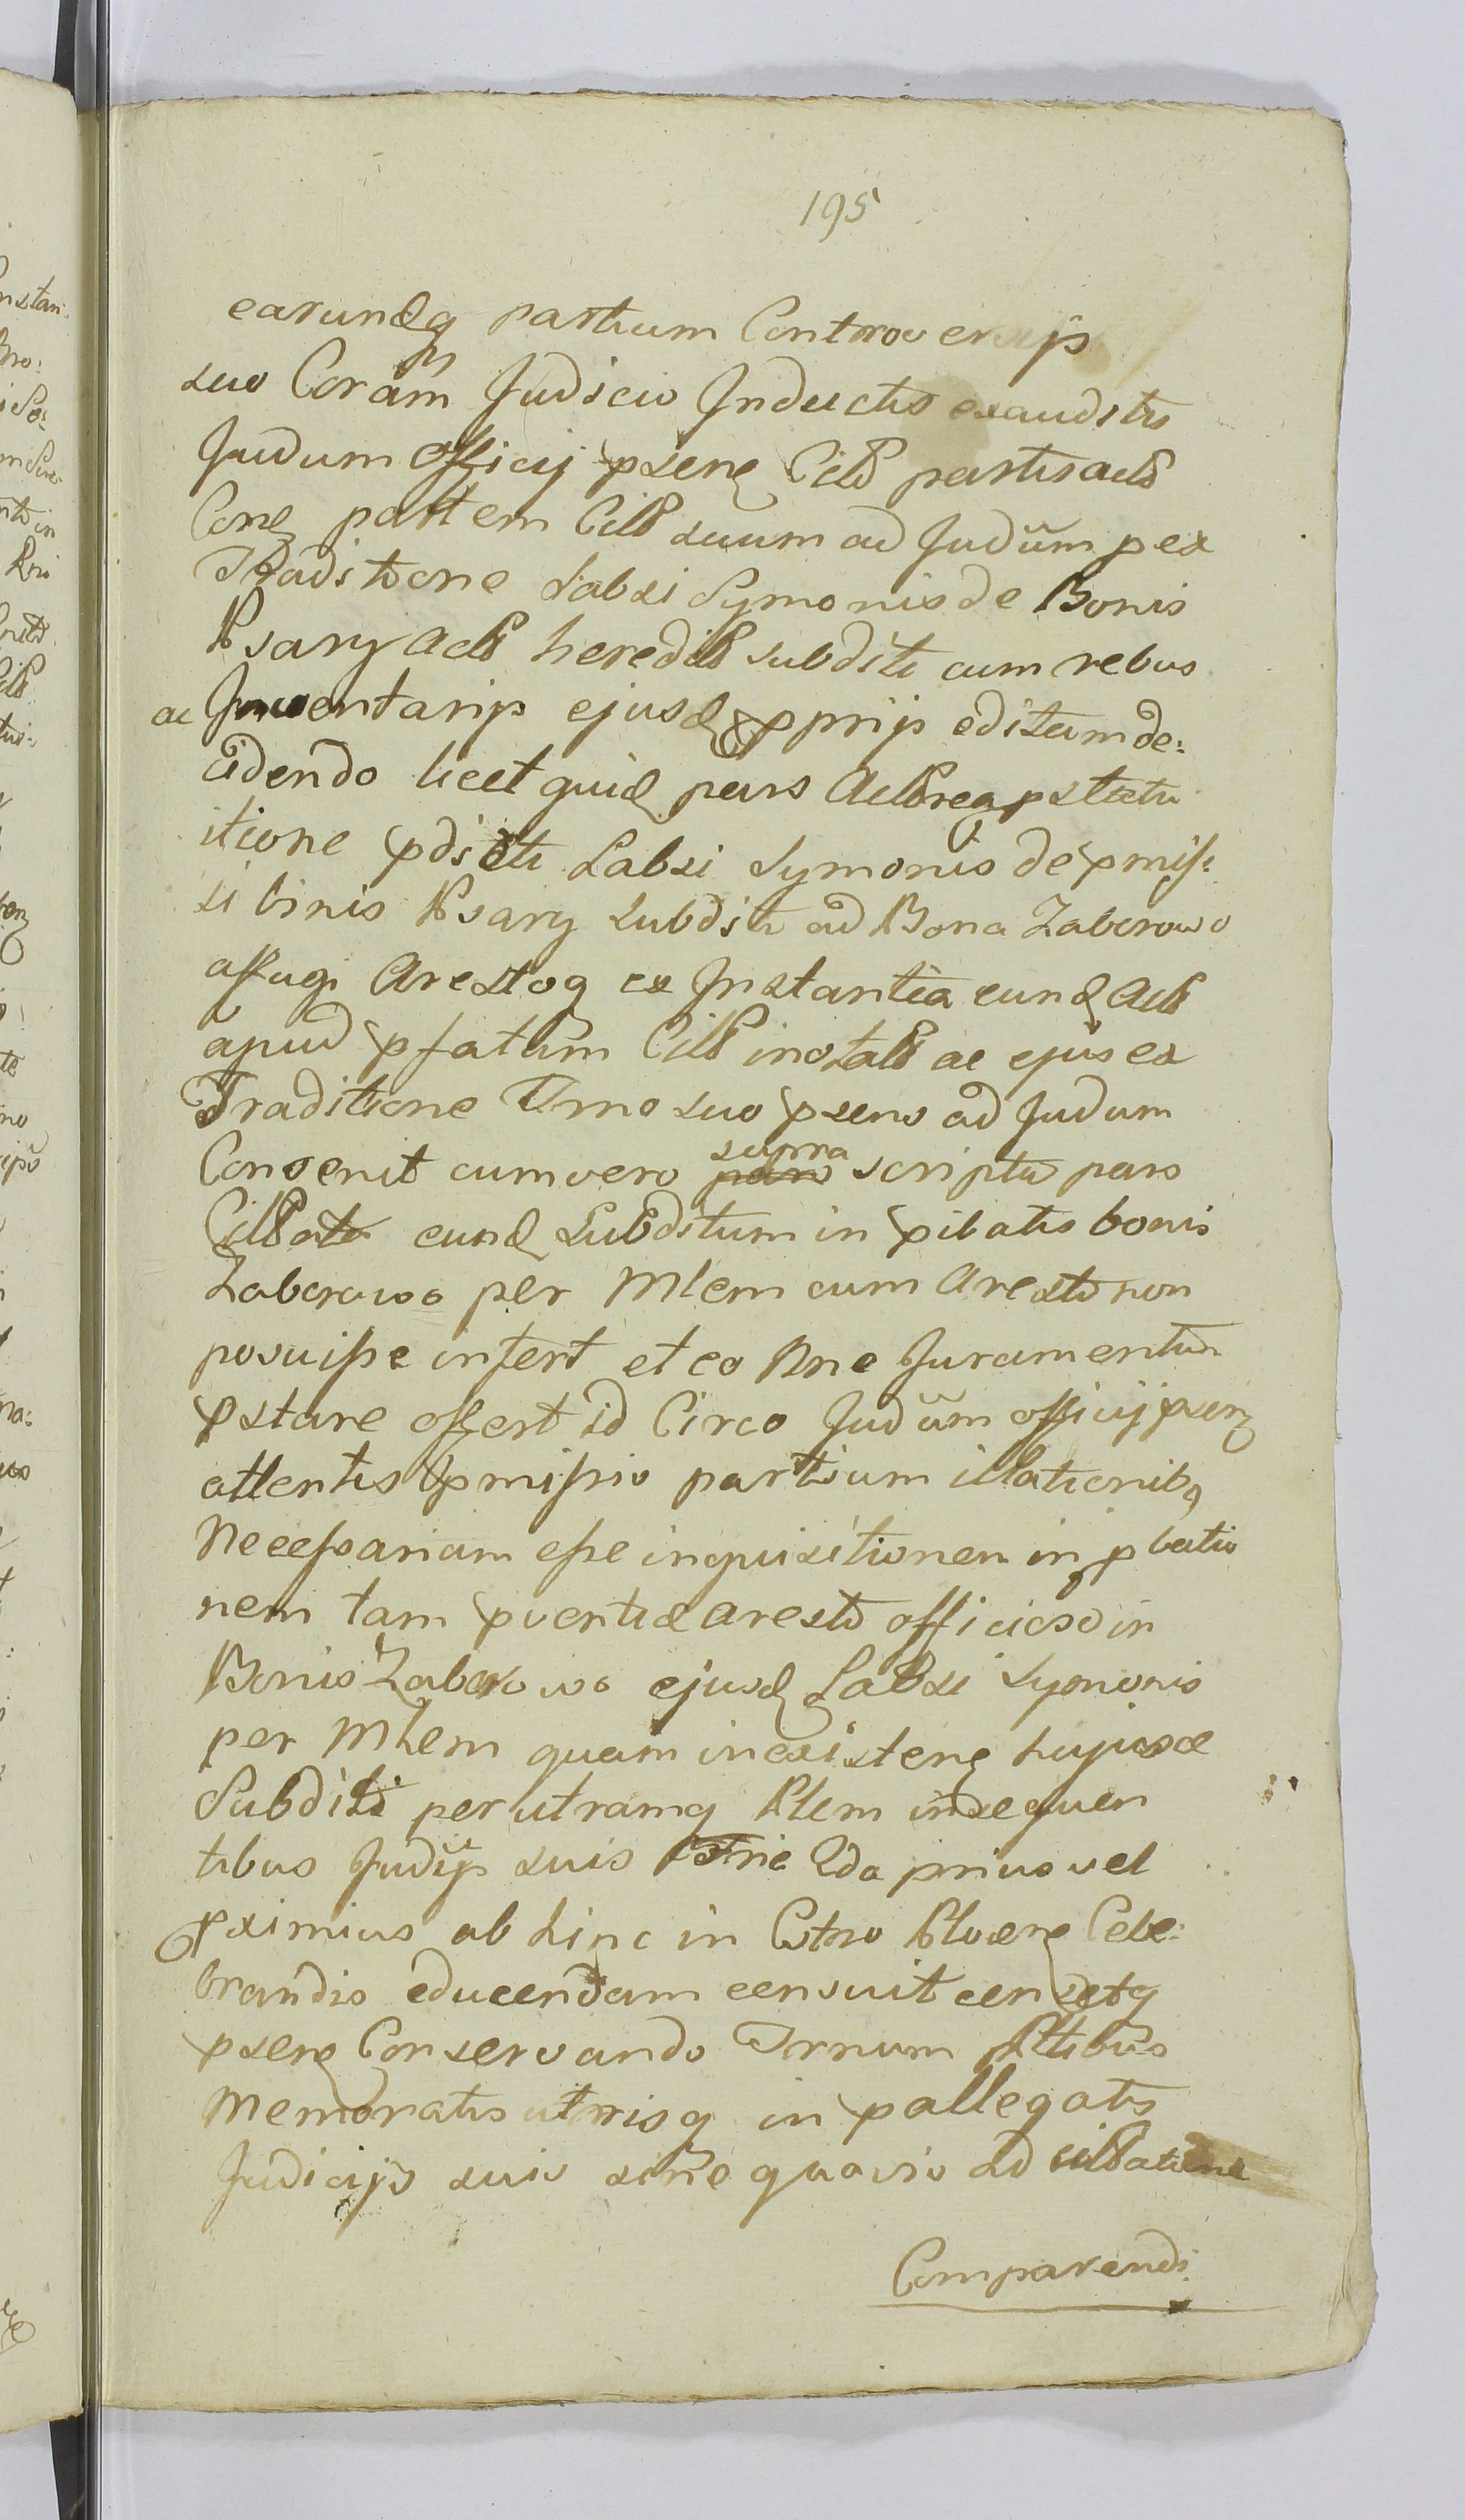 195
earundq partium Controversijs
suo Coram Judicio Inductis exauditis
Judum Officij psenq Citt partis actt
Conq partem Citt suum ad Judum p ex
Traditione Labsi Symonis de Bonis
Psary actt heredit subditi cum rebus
ac Inventarijs ejusd pprijs editum de:
cidendo licet quid pars Acttrea p statu
itione pdicti Labsi Symonis de pmiss:
si binis Psary Subditi ad Bona Zaborowo
affugi Arestoq ex Instantia eund Actt
apud pfatum Citt inotatt ac ejus ex
Traditione Trno suo psens ad Judum
Consenit cum vero supra scripta pars
Cittata eund Subditum in pibatis bonis
Zaborowo per Mlem cum Aresto non
posuisse infert et eo Nne Juramentum
pstare offert id Circo Judum officij psenq
attentis pmissis partium illationibq
Necessariam esse inquisitionem in p batio
nem tam pventa aresto officioso in
Bonis Zaborowo ejusd Labsi Symonis
per Mlem quam inexistenq hujusd
Subditi per utramq Ptem insequen
tibus Judijs suis Trie 2da prius vel
pximius ab hinc in Cstro Plocenq Cele:
brandis educendam censuit censetq
psenq Conservando Trnum Pttibus
Memoratis utrisq in pallegatis
Judicijs suis sine quavis ad cittatione
Comparendi